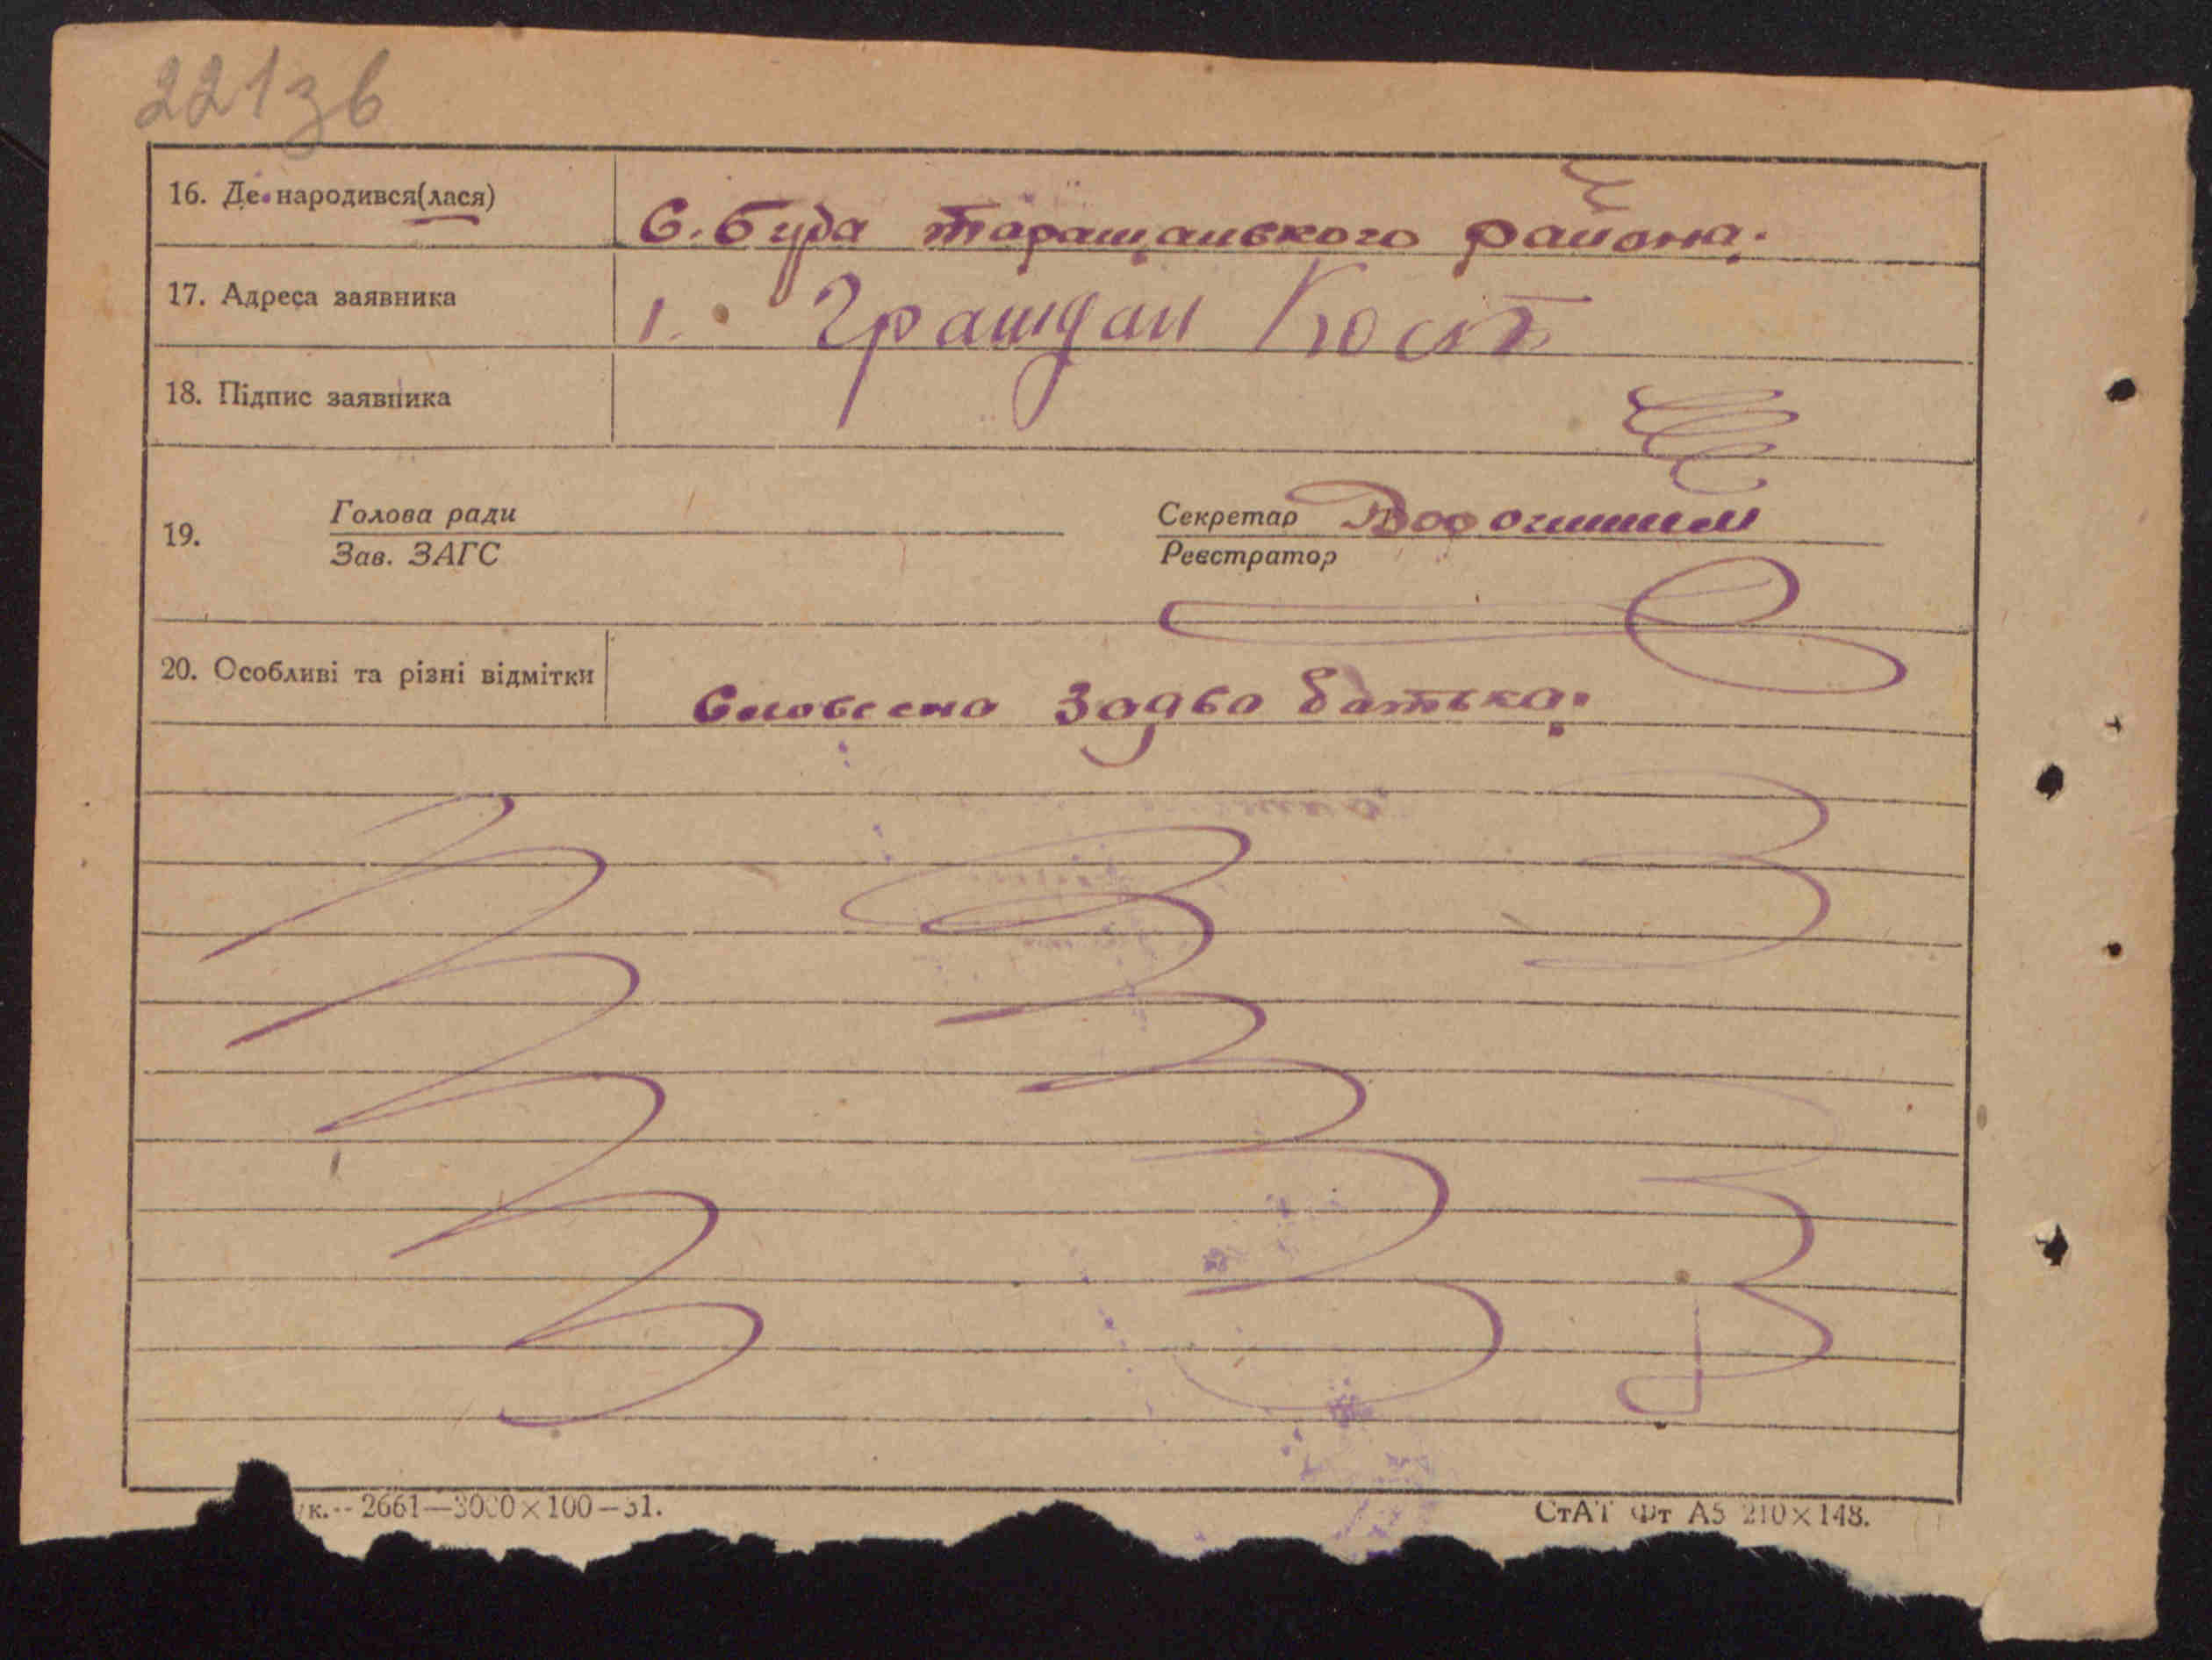 221зв
16. Де народився(лася)
С. Буда таращанвского района.
17. Адреса заявника
1. Грамдан Кост
18. Підпис заявника
19. Голова ради
Зав. ЗАГС
Секретар
Реєстратор
20. Особливі та різні відмітки
Словесна Заява батька.
к. -- 2661—3000×100—31.
СтАТ Фт А5 210×148.